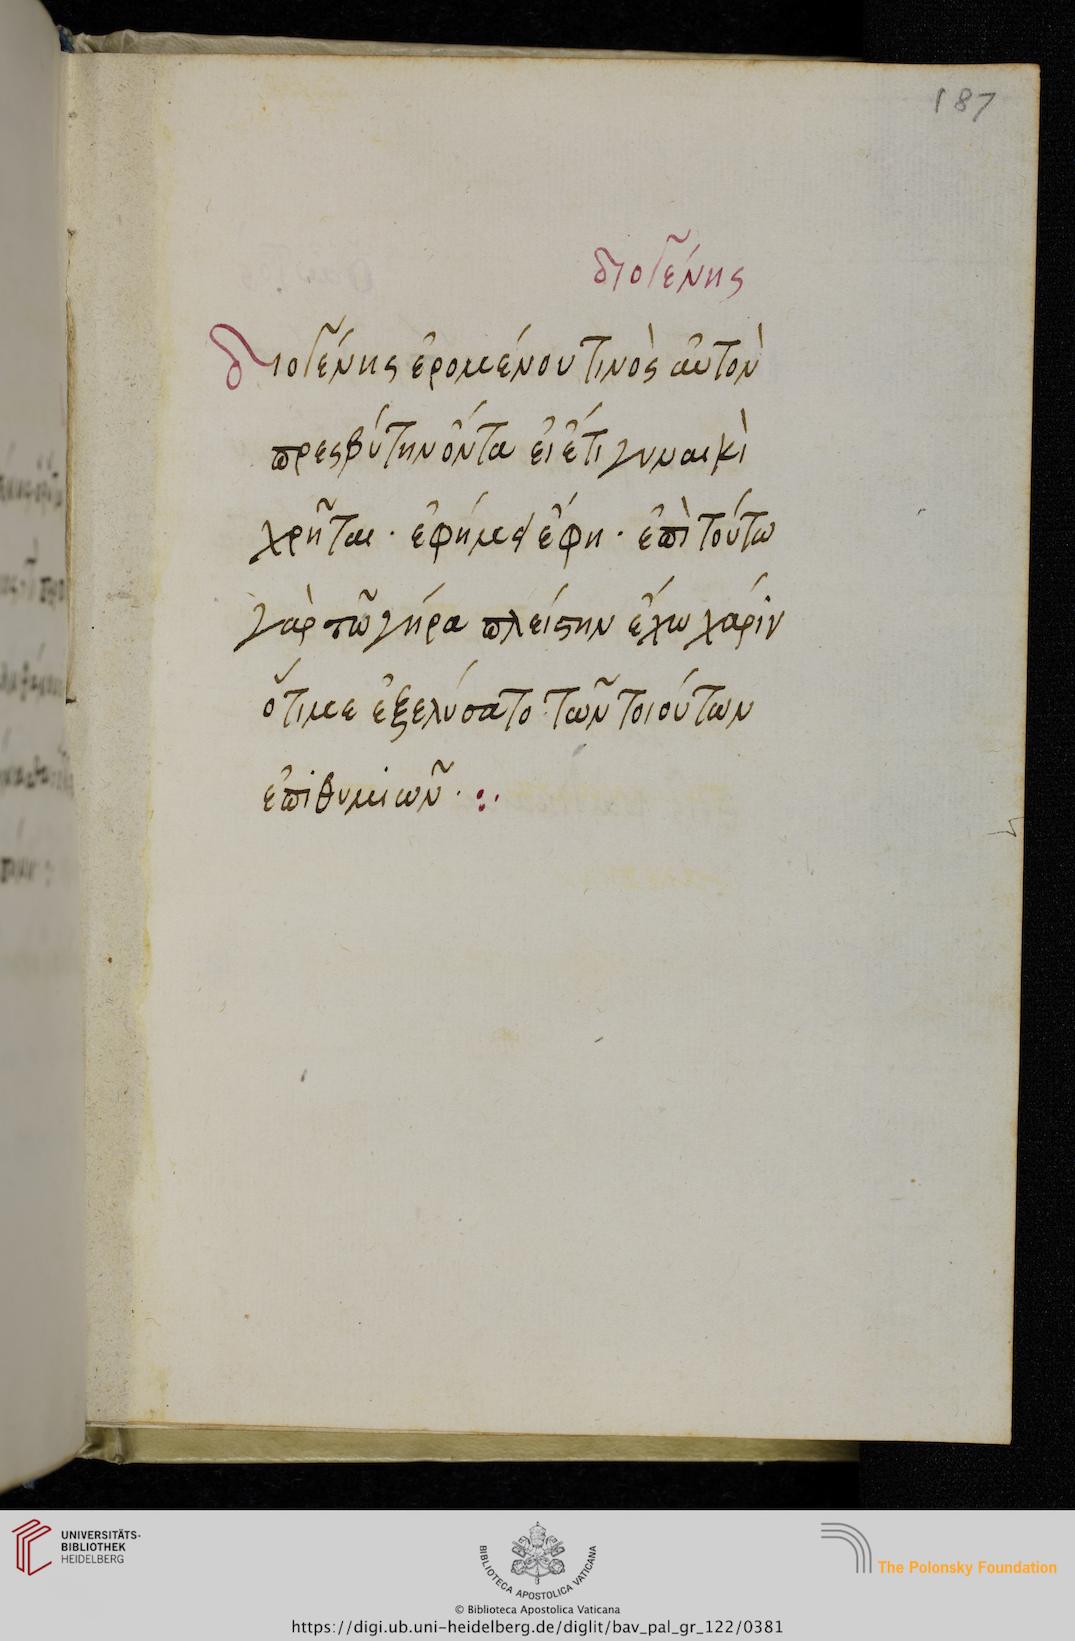 187
διογένης
διογένης ἐρομένου τινὸς αὐτὸν
πρεσβύτην ὄντα εἰ ἔτι γυναικὶ
χρῆται · εὐφήμει ἔφη · ἐπὶ τούτω
γὰρ τῶ γήρα πλείστην ἔχω χάριν
ὅτι με ἐξελύσατο τῶν τοιούτων
ἐπιθυμιῶν · :·
UNIVERSITÄTS-
BIBLIOTHEK
HEIDELBERG
BIBLIOTECA APOSTOLICA VATICANA
The Polonsky Foundation
© Biblioteca Apostolica Vaticana
https://digi.ub.uni-heidelberg.de/diglit/bav_pal_gr_122/0381